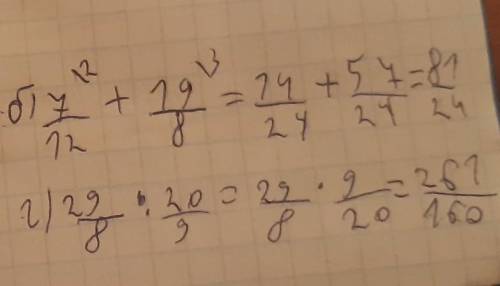 б) 7/12 \2 + 19/8 \3 = 14/24 + 57/24 = 81/24
г) 29/8 : 20/9 = 29/8 · 9/20 = 261/160